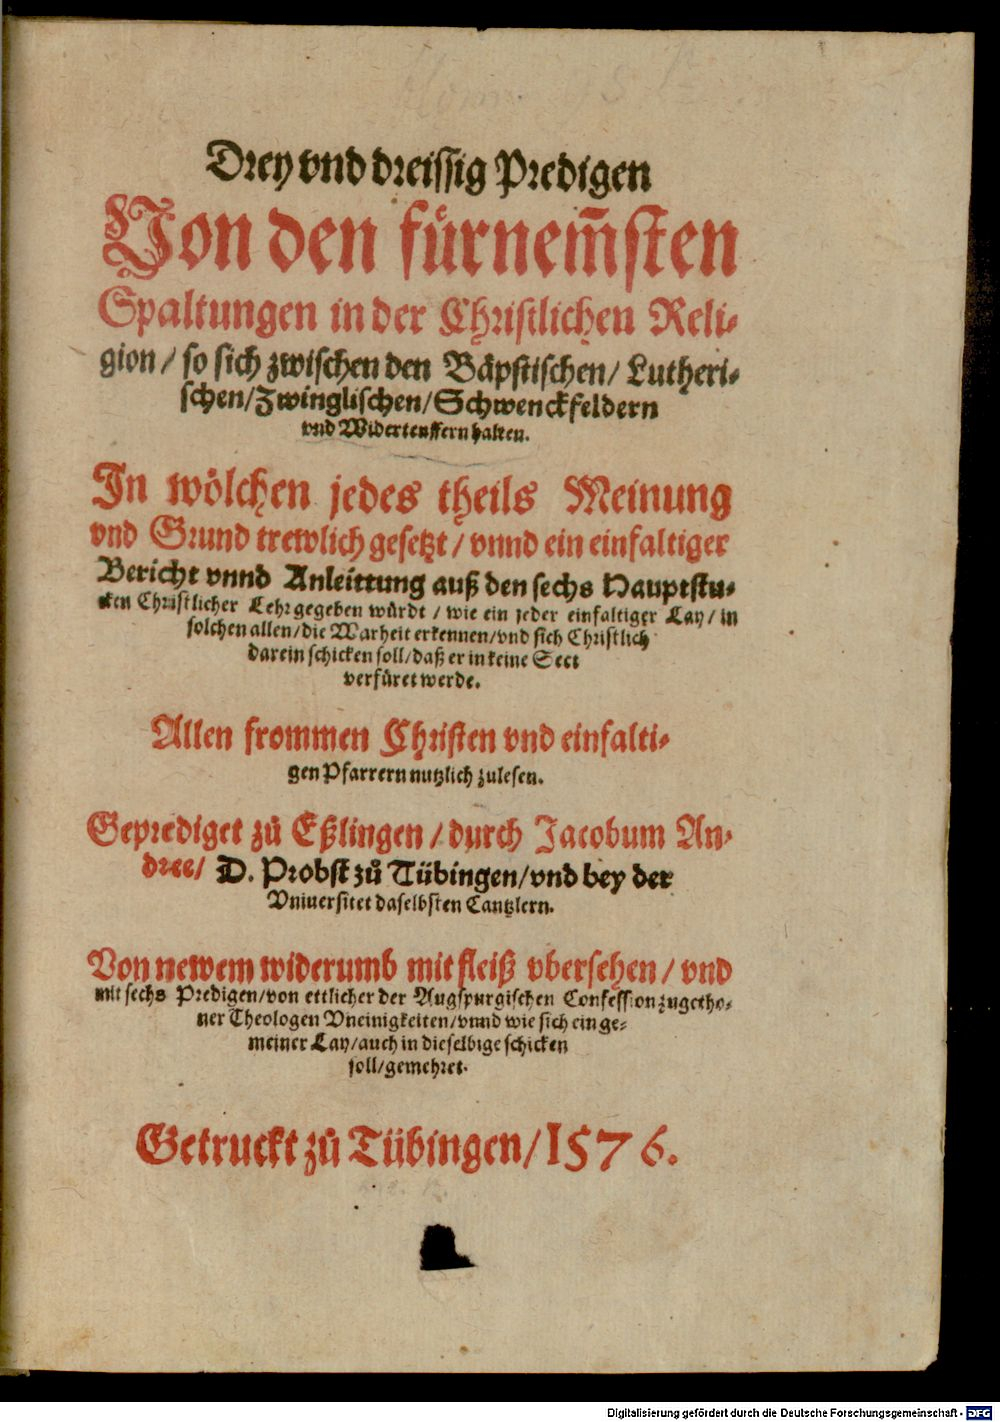 Drey vnd dreissig Predigen
Von den fürnem̄sten
Spaltungen in der Christlichen Reli-
gion / so sich zwischen den Bäpstischen / Lutheri-
schen / Zwinglischen / Schwenckfeldern
vnd Widerteuffern halten.
In wölchen jedes theils Meinung
vnd Grund trewlich gesetzt / vnnd ein einfaltiger
Bericht vnnd Anleittung auß den sechs Hauptstu-
cken Christlicher Lehr gegeben würdt / wie ein jeder einfaltiger Lay / in
solchen allen / die Warheit erkennen / vnd sich Christlich
darein schicken soll / daß er in keine Sect
verfüret werde.
Allen frommen Christen vnd einfalti-
gen Pfarrern nutzlich zulesen.
Geprediget zů Eßlingen / durch Jacobum An-
dree / D. Probst zů Tübingen / vnd bey der
Vniuersitet daselbsten Cantzlern.
Von newem widerumb mit fleiß vbersehen / vnd
mit sechs Predigen / von ettlicher der Augspurgischen Confession zugetho-
ner Theologen Vneinigkeiten / vnnd wie sich ein ge-
meiner Lay / auch in dieselbige schicken
soll / gemehret.
Getruckt zů Tübingen / 1576.
Digitalisierung gefördert durch die Deutsche Forschungsgemeinschaft - DFG